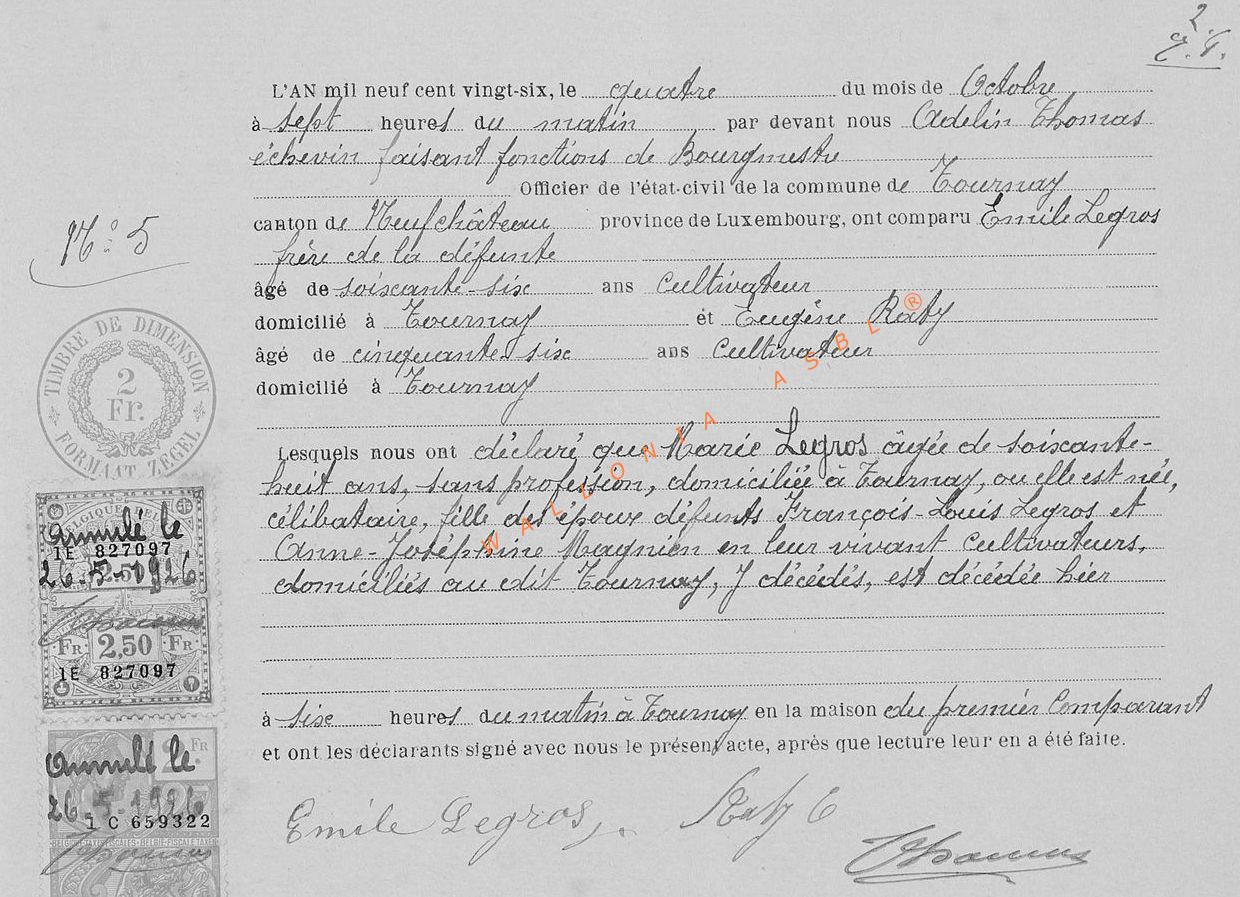 2
J. T.
L'AN mil neuf cent vingt-six, le quatre du mois de Octobre
à sept heures du matin par devant nous Adelin Thomas
échevin faisant fonctions de Bourgmestre
Officier de l'état-civil de la commune de Tournay
canton de Neufchâteau province de Luxembourg, ont comparu Emile Legros
frère de la défunte
âgé de soixante-six ans cultivateur
domicilié à Tournay et Eugène Raty
âgé de cinquante-six ans cultivateur
domicilié à Tournay
Lesquels nous ont déclaré que Marie Legros âgée de soixante-
huit ans, sans profession, domiciliée à Tournay, ou elle est née,
célibataire, fille des époux défunts François-Louis Legros et
Anne-Joséphine Magnien en leur vivant cultivateurs,
domiciliés au dit Tournay, y décédés, est décédée hier
à six heures du matin à Tournay en la maison du premier Comparant
et ont les déclarants signé avec nous le présent acte, après que lecture leur en a été faite.
Emile Legros, Raty E
Thomas
N° 5
TIMBRE DE DIMENSION
2
Fr.
FORMAAT ZEGEL
Annulé le
1E 827097
26-5-1926
Thomas
FR 2,50 FR
1E 827097
Annulé le
FR
26-5-1926
1 C 659322
Thomas
WALLONIA ASBL®